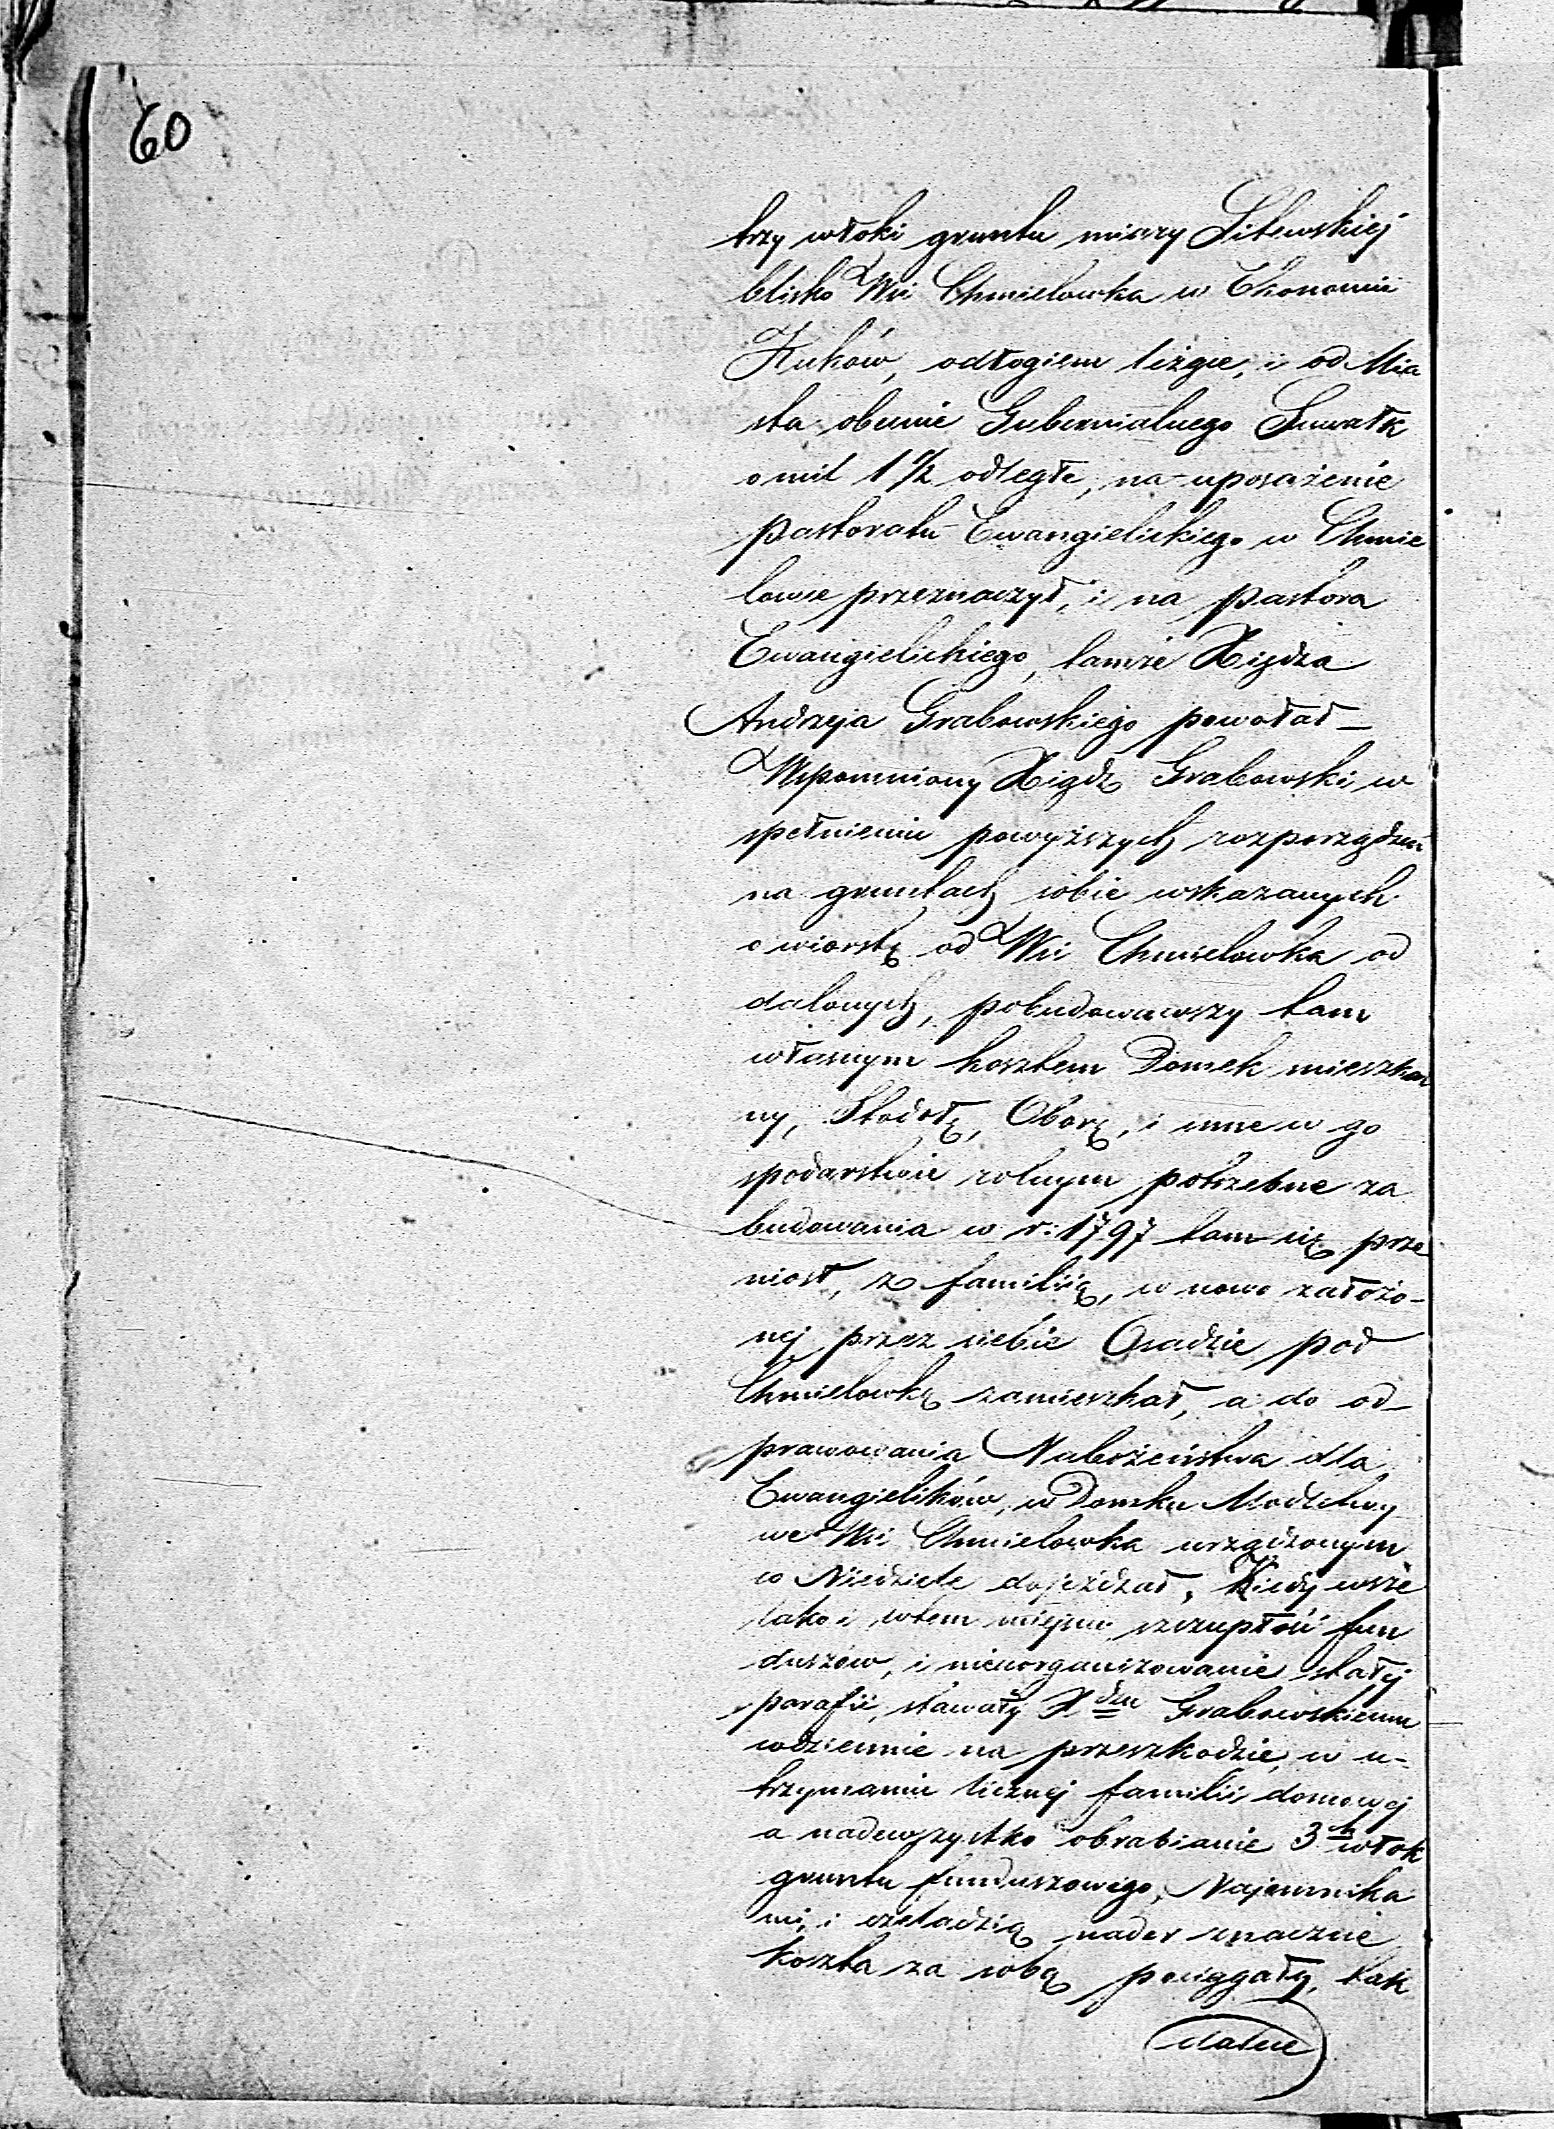 60
trzy włoki gruntu miary Litewskiej
blisko Wsi Chmielowka w Ekonomii
Kuków, odłogiem liżące, i od Mia
sta obecnie Gubernialnego Suwałk
o mil 1 1/2 odległe, na uposażenie
pastoratu Ewangielickiego w Chmie
lowce przeznaczył, i na pastora
Ewangielickiego, tamże Xiędza
Andrzeja Grabowskiego powołał –
Wspomniony Xiądz Grabowski w
spełnieniu powyższych rozporządzeń
na gruntach sobie wskazanych
o wiorstę od Wsi Chmielowka od
dalonych, pobudowawszy tam
własnym kosztem Domek mieszkal
ny, Stodołę, Oborę, i inne w go
spodarstwie rolnym potrzebne za
budowania w r: 1797 tam się prze
niosł, z familią, w nowo założo-
nej przez siebie Osadzie pod
Chmielowką zamieszkał, a do od-
prawowania Nabożeństwa dla
Ewangielików, w Domku Modlitwy
we Wsi Chmielowka urządzonym
co Niedziele dojeżdżał. Kiedy wsze
lako i wtem miejscu szczupłość fun
duszów, i nieuorganizowanie stałej
parafii, stawały X dzu Grabowskiemu
codziennie na przeszkodzie, w u-
trzymaniu licznej familii domowej
a nadewszystko obrabianie 3 ch włok
gruntu funduszowego, Najemnika
mi, i czeladzią nader znaczne
koszta za sobą pociągały, tak
dalece